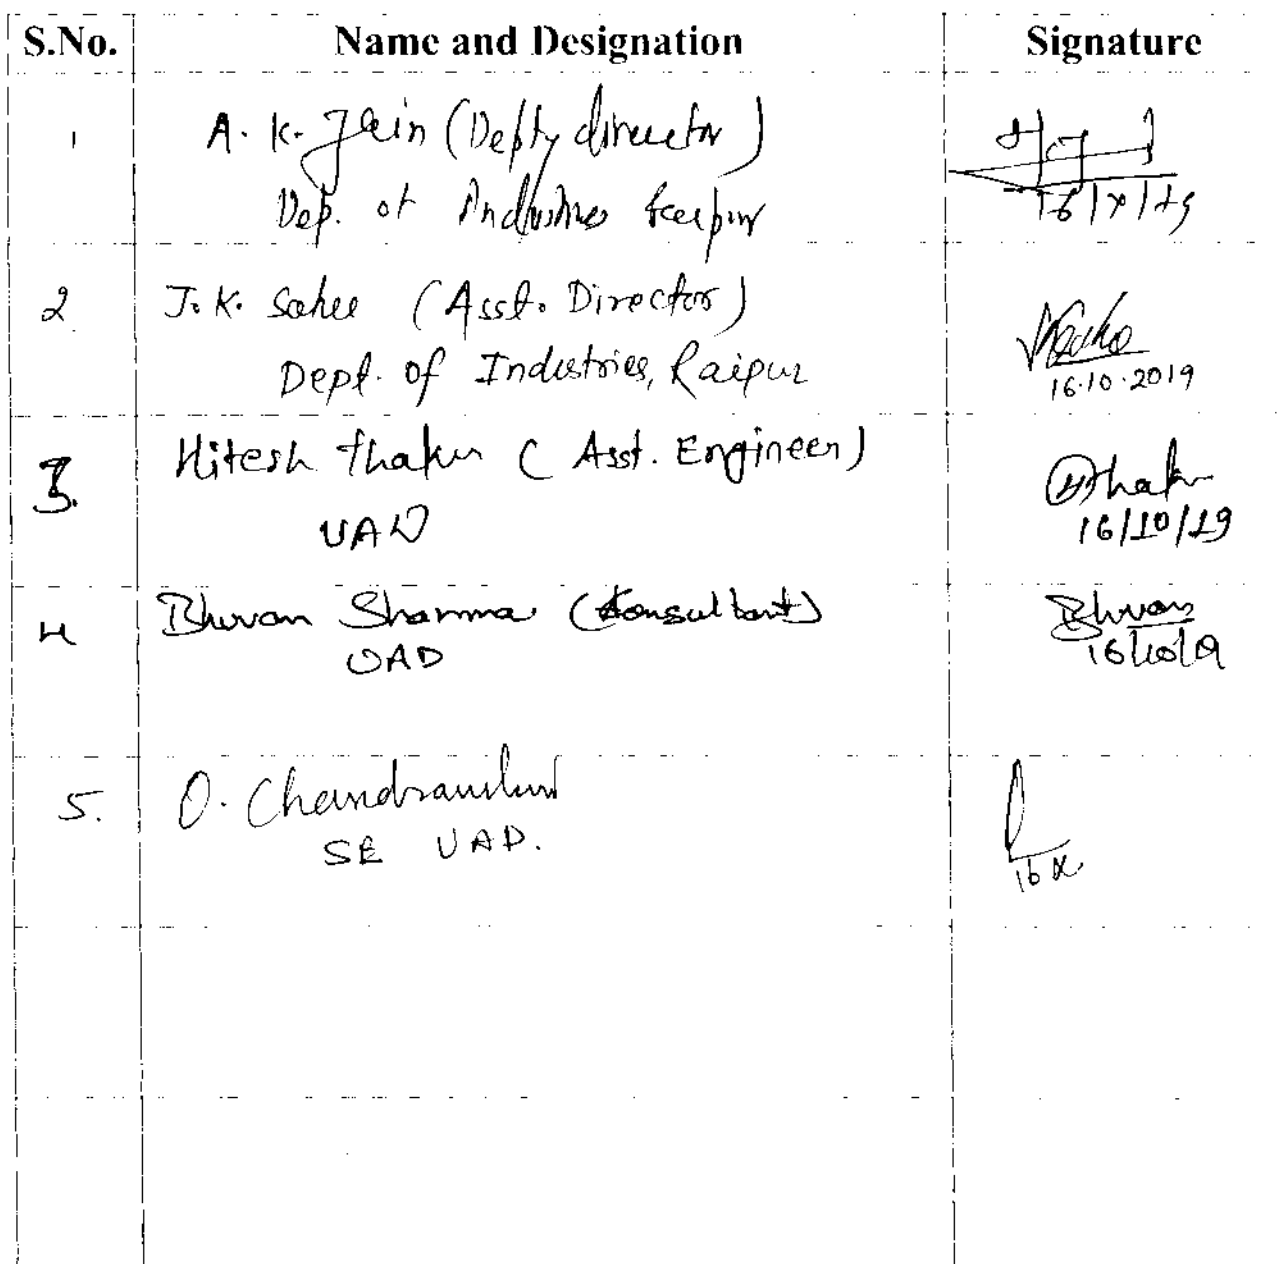 S.No. Name and Designation Signature
1 A. K. Jain (Depty director)
Dep. of Industries Raipur
16/X/19
2 J. K. Sahu (Asst. Director)
Dept. of Industries, Raipur
16.10.2019
3. Hitesh Thakur (Asst. Engineer) Thakur
UAD 16/10/19
4 Bhuvan Sharma (Consultant) Bhuvan
UAD 16/10/19
5. O. 
SE UAD.
16 X